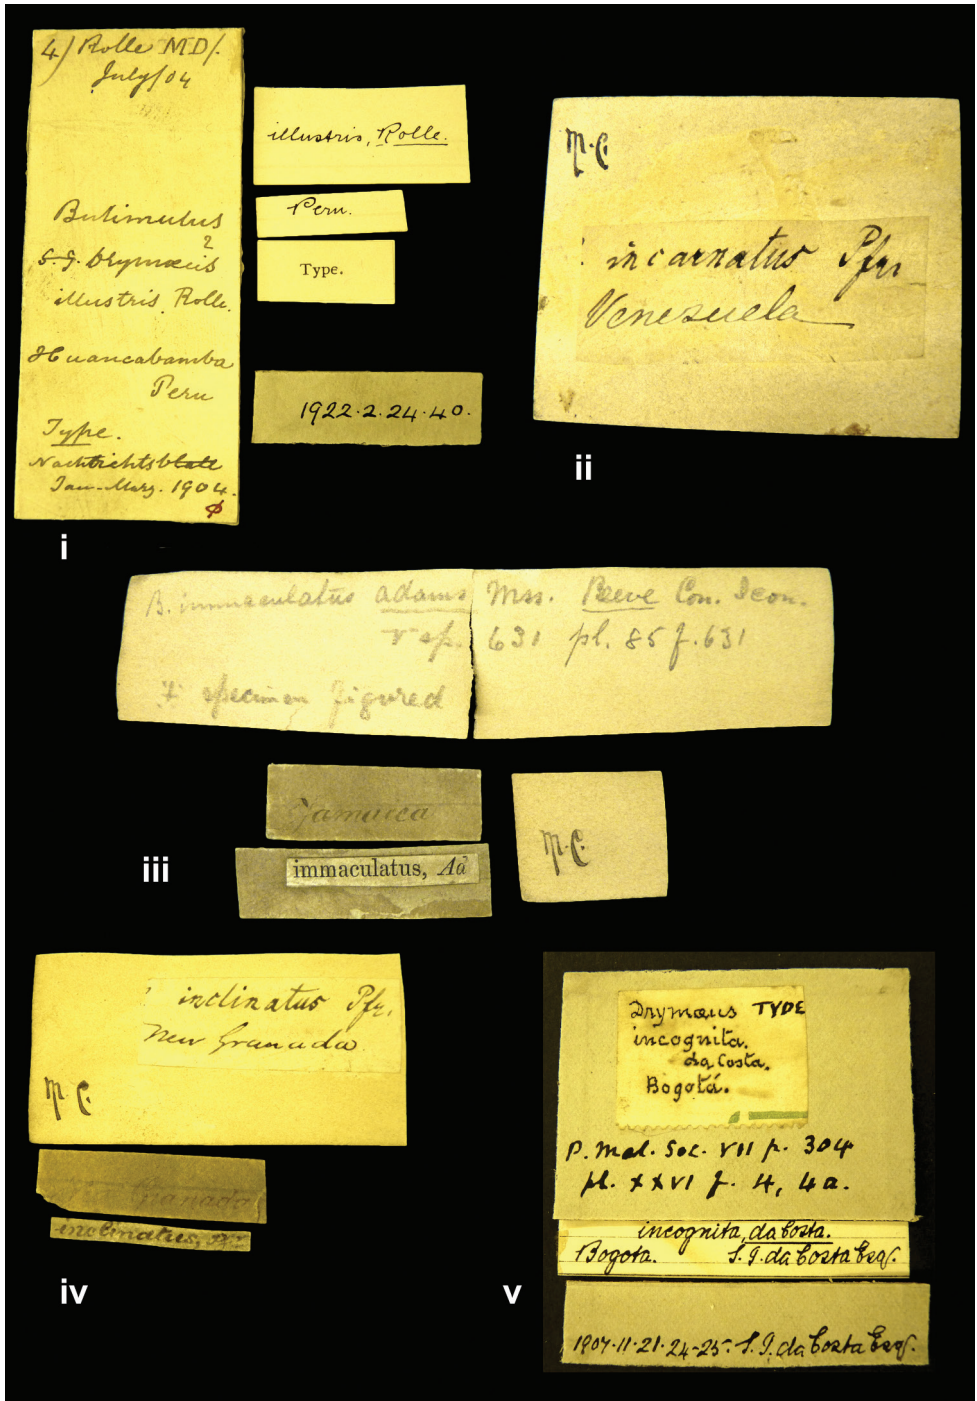 4) Rolle MD/.
July/04
Bulimulus
2
S. G. Drymæus
illustris, Rolle.
Huancabamba
Peru
Type.
Nachrichtsblatt
Jan-Marz. 1904.
φ
illustris, Rolle.
Peru.
Type.
1922.2.24.40.
i
M.C.
incarnatus Pfr.
Venezuela
ii
B. immaculatus Adams Mss. Reeve Con. Icon.
v sp. 631 pl. 85 f. 631
specimen figured
Jamaica
immaculatus, Ad
M.C.
iii
inclinatus Pfr.
New Granada
M.C.
Granada
inclinatus,
iv
Drymæus TYPE
incognita.
da Costa.
Bogotá.
P. Mal. Soc. VII p. 304
pl. XXVI f. 4, 4a.
incognita, da Costa.
Bogota. S. I. da Costa Esq.
1907.11.21.24-25. S. I. da Costa Esq.
v